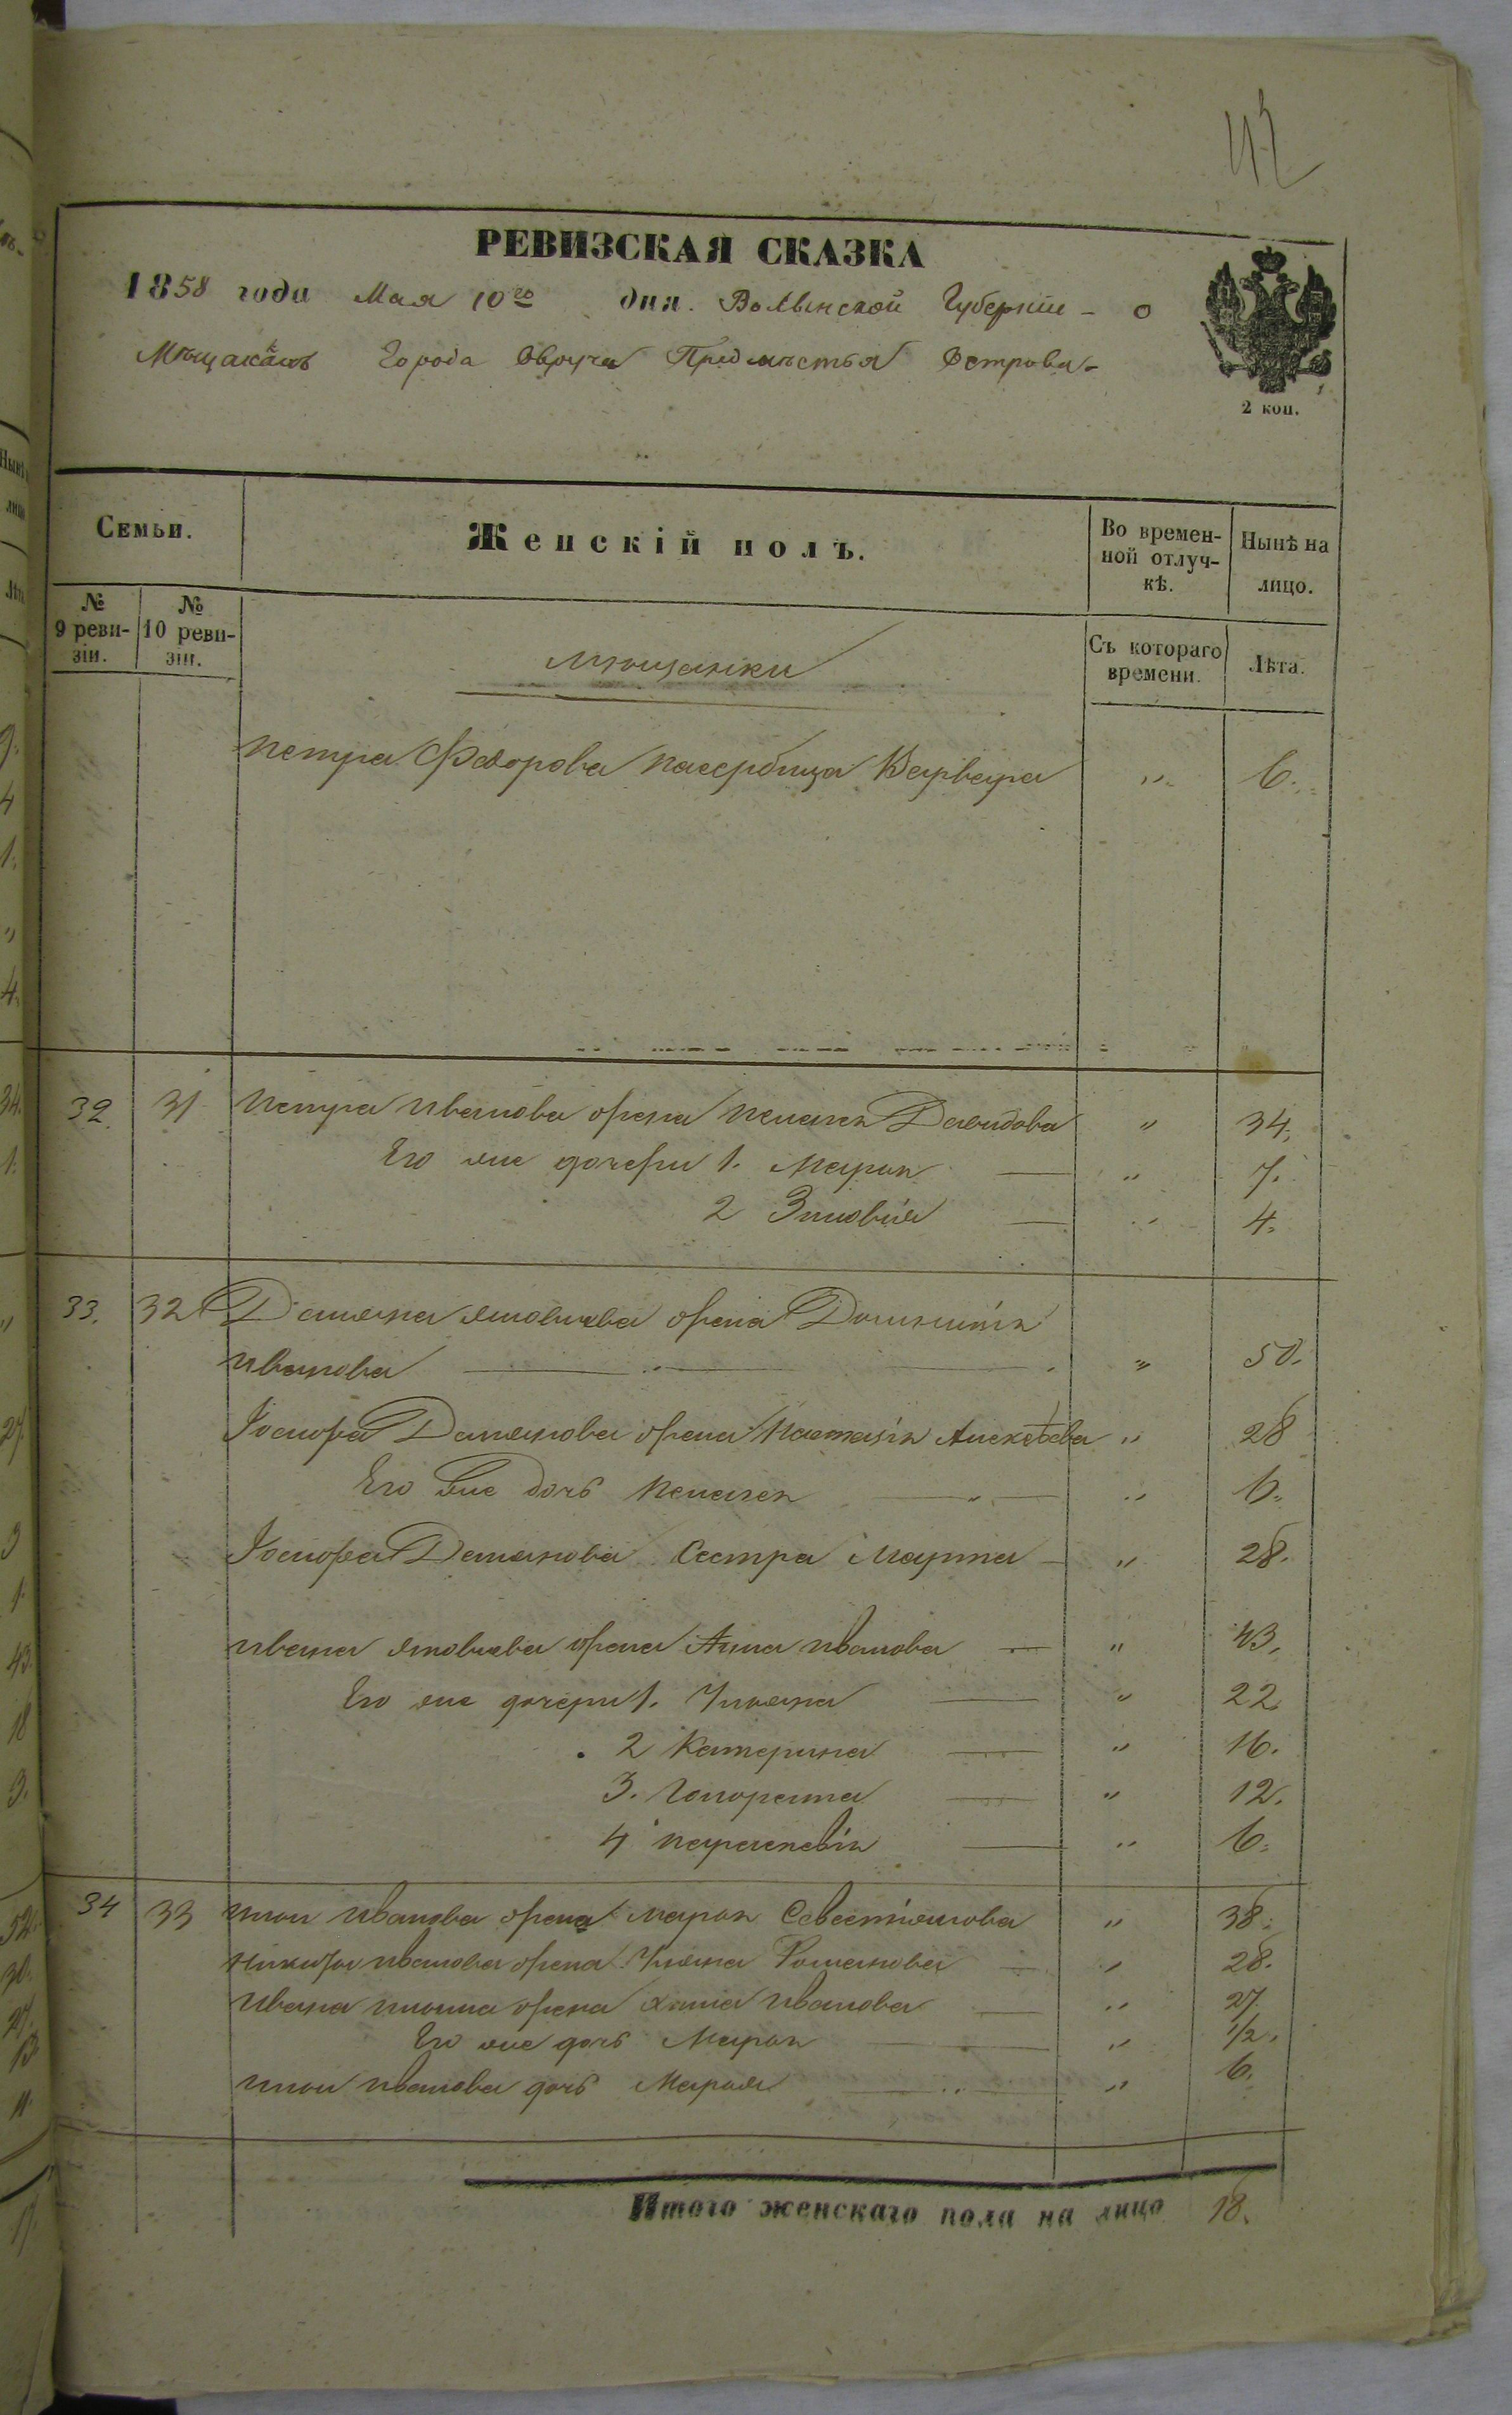 42
РЕВИЗСКАЯ СКАЗКА
1858 года Мая 10го дня. Волынской Губернии - о
Мѣщанахъ Города Овруча Предмѣстья Острова.
2 коп.
Семьи.
Женскій полъ.
Во времен-
ной отлуч-
кѣ.
Нынѣ на
лицо.
№
9 реви-
зіи.
№
10 реви-
зіи.
Съ котораго
времени.
Лѣта.
мѣщанки
Петра Федорова пасербица Варвара " 6.
32. 31 Петра Иванова жена Пелагея Давидова " 34.
Его же дочери 1. Марія " 7.
2 Зиновія " 4.
33. 32 Дамяна Яковлева жена
Иванова " 50.
Іосифа Дамянова жена Наталія Алексѣева " 28
Его же дочь Пелагея " 6.
Іосифа Демянова Сестра Марта " 28.
Ивана Яковлева жена Анна Иванова " 43.
Его же дочери 1. Ульяна " 22
2 Катерина " 16.
3. Гонората " 12.
4 Параскевія " 6.
34 33 Ильи Иванова жена Марія Севестіянова " 38.
Никифора Иванова жена Ульяна Романова " 28.
Ивана Ильина жена Анна Иванова " 27
Его же дочь Марія " 1/2.
Ильи Иванова дочь Марья " 6.
Итого женскаго пола на лицо 18.